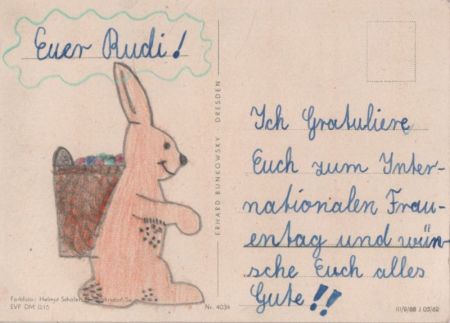 Euer Rudi!
ERHARD BUNKOWSKY DRESDEN
Ich Gratuliere
Euch zum Inter-
nationalen Frau-
entag und wün-
sche Euch alles
Gute!!
Farbfoto: Helmut Schäfer
EVP DM 0,15
Nr. 4034
III/9/88 J 05/62